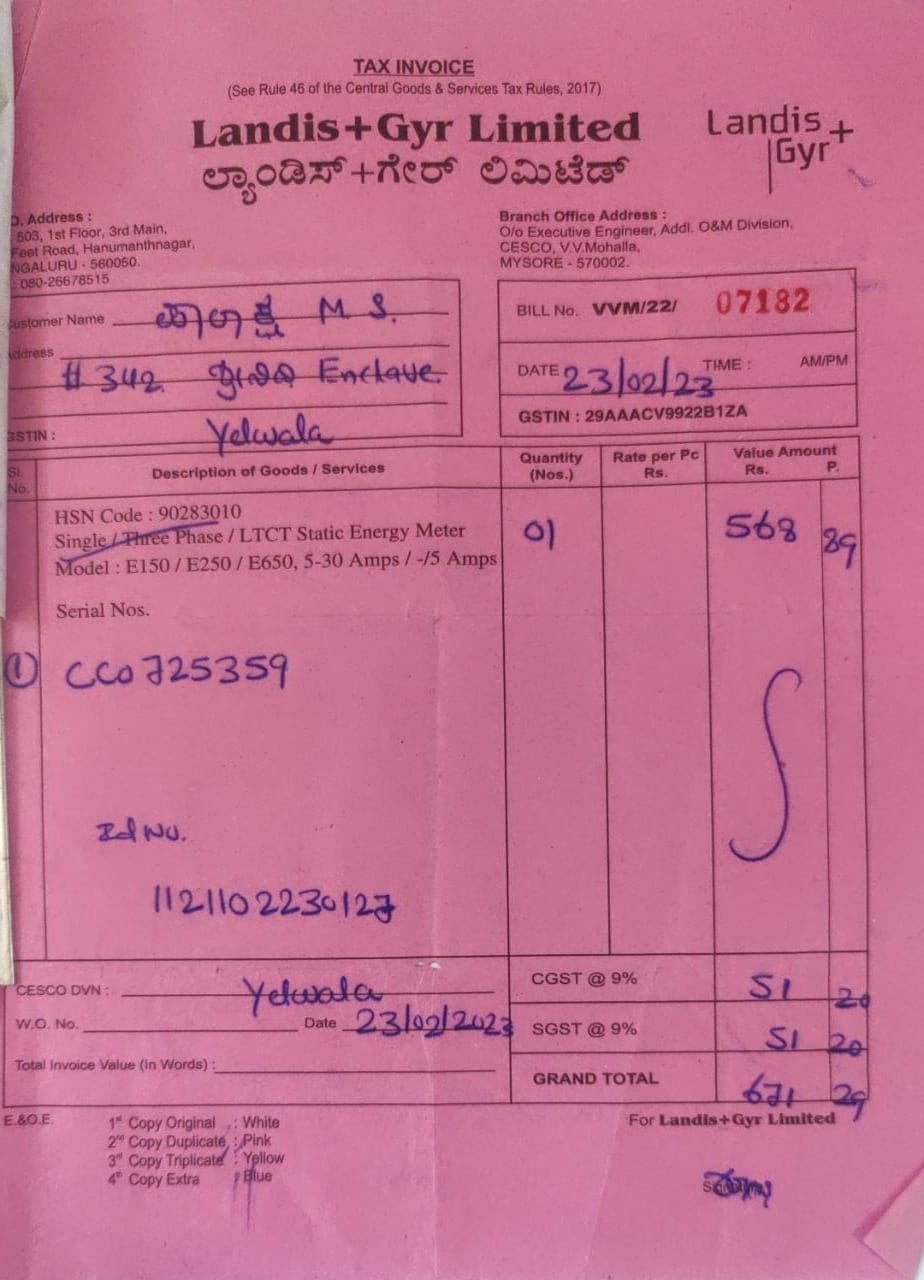 TAX INVOICE
(See Rule 46 of the Central Goods & Services Tax Rules, 2017)
Landis+Gyr Limited
ಲ್ಯಾಂಡಿಸ್+ಗೇರ್ ಲಿಮಿಟೆಡ್
Landis+
Gyr
Address :
503, 1st Floor, 3rd Main,
Feet Road, Hanumanthnagar,
NGALURU - 560050.
: 080-26678515
Branch Office Address :
O/o Executive Engineer, Addl. O&M Division,
CESCO, V.V.Mohalla,
MYSORE - 570002.
Customer Name M S.
Address
# 342 Enclave.
GSTIN : Yelwala
BILL No. VVM/22/ 07182
DATE 23/02/23 TIME : AM/PM
GSTIN : 29AAACV9922B1ZA
Sl. No. Description of Goods / Services Quantity (Nos.) Rate per Pc Rs. Value Amount Rs. P.
HSN Code : 90283010
Single / Three Phase / LTCT Static Energy Meter 01 568 89
Model : E150 / E250 / E650, 5-30 Amps / -/5 Amps
Serial Nos.
① CC0725359
Id No.
1121102230127
CESCO DVN : Yelwala CGST @ 9% 51 20
W.O. No. Date 23/02/2023 SGST @ 9% 51 20
Total Invoice Value (In Words) : GRAND TOTAL 671 29
E.&O.E.
1st Copy Original : White
2nd Copy Duplicate : Pink
3rd Copy Triplicate : Yellow
4th Copy Extra : Blue
For Landis+Gyr Limited